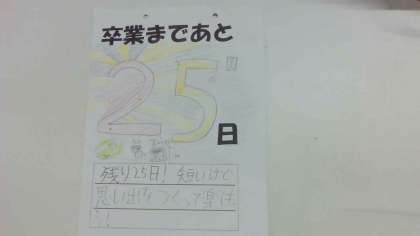 卒業まであと
25
日
残り25日!短いけど
思い出をつくって楽しもう!